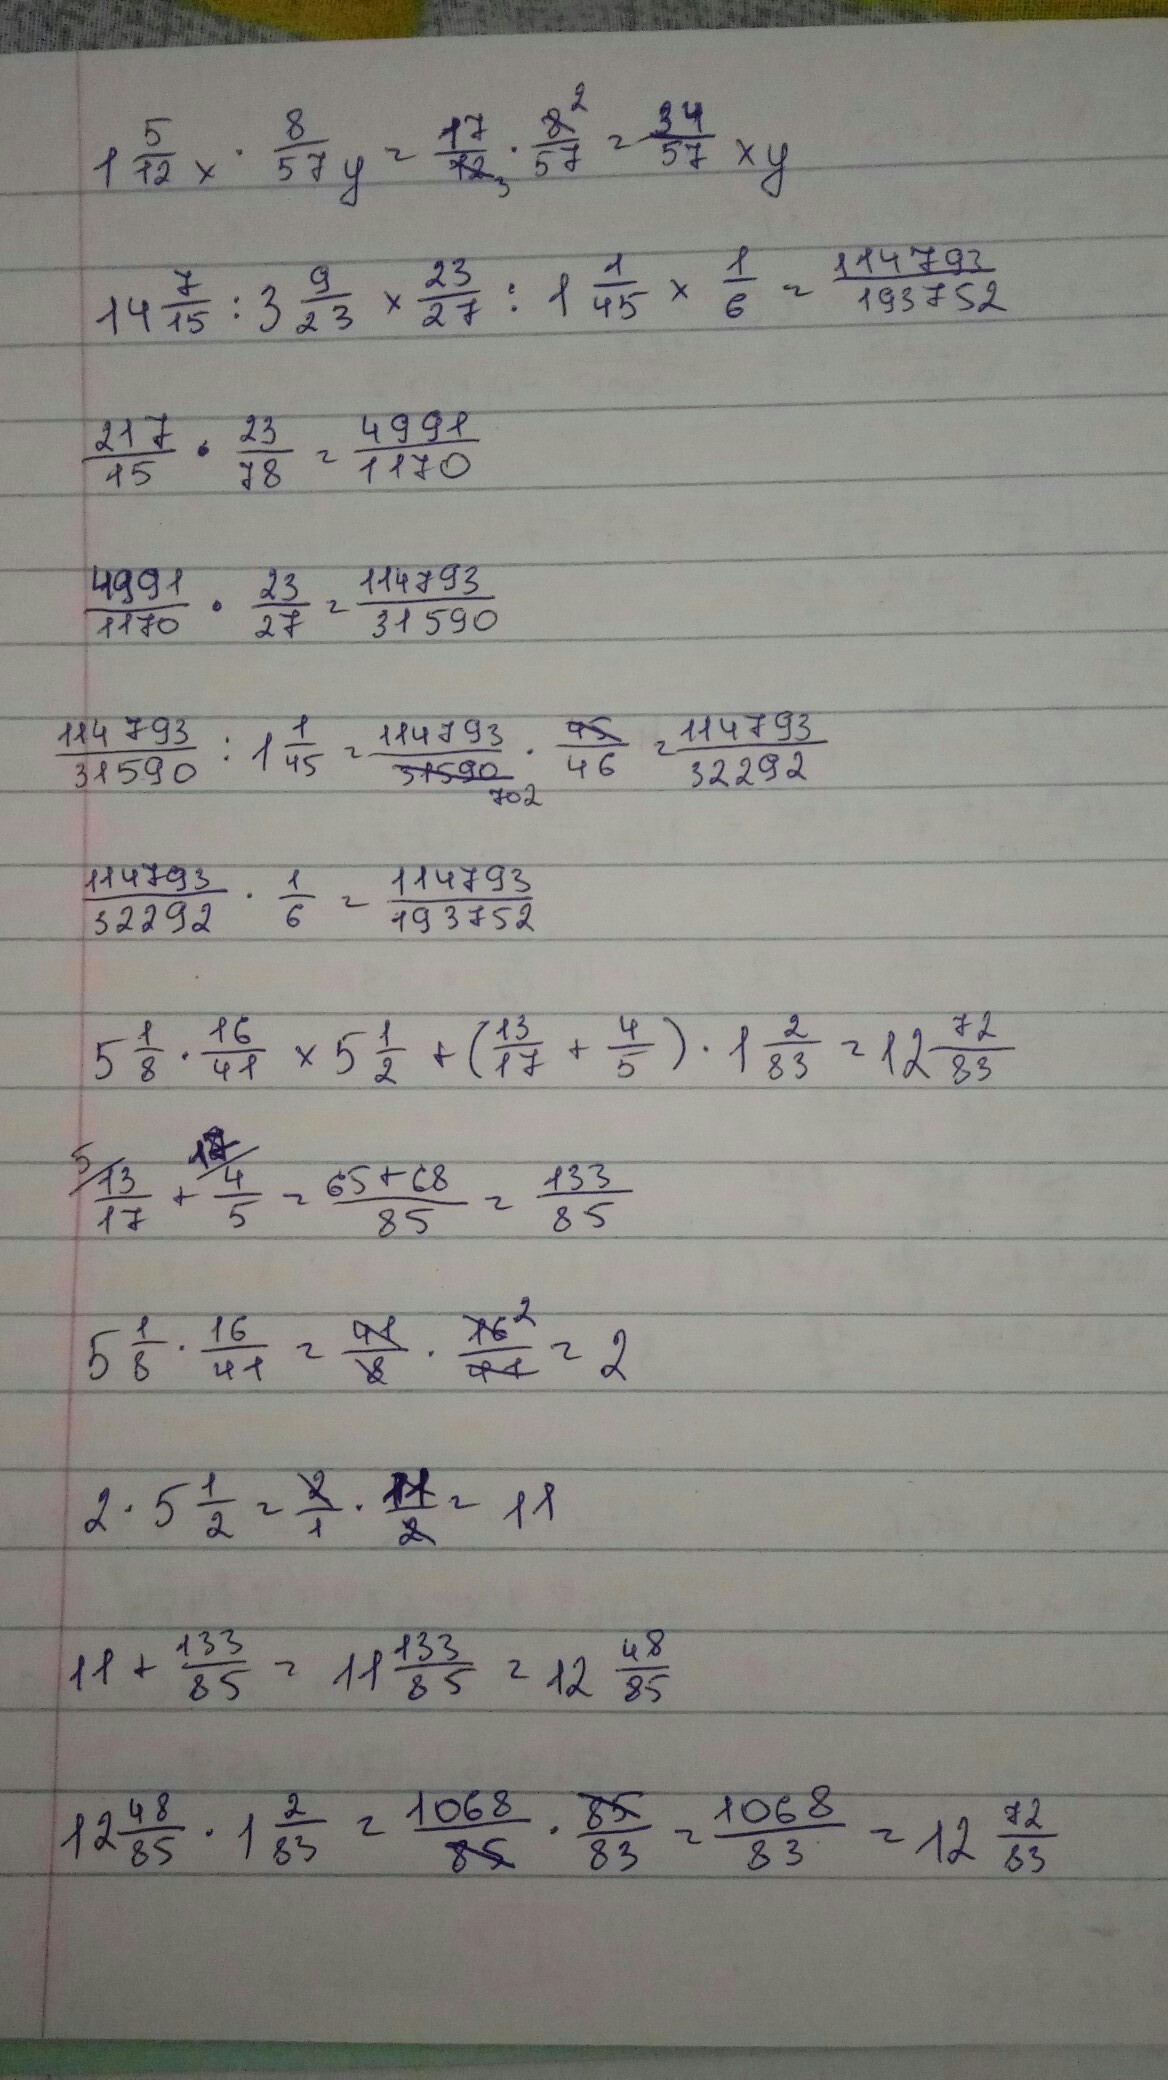 1 5/12 x · 8/57 y = 17/12 3 · 8/57 2 = 34/57 xy
14 7/15 : 3 9/23 × 23/27 : 1 1/45 × 1/6 = 114793/193752
217/15 · 23/78 = 4991/1170
4991/1170 · 23/27 = 114793/31590
114793/31590 : 1 1/45 = 114793/31590 702 · 45/46 = 114793/32292
114793/32292 · 1/6 = 114793/193752
5 1/8 · 16/41 × 5 1/2 + (13/17 + 4/5) · 1 2/83 = 12 72/83
5/ 13/17 + 17/ 4/5 = 65+68/85 = 133/85
5 1/8 · 16/41 = 41/8 · 16/41 2 = 2
2 · 5 1/2 = 2/1 · 11/2 = 11
11 + 133/85 = 11 133/85 = 12 48/85
12 48/85 · 1 2/83 = 1068/85 · 85/83 = 1068/83 = 12 72/83